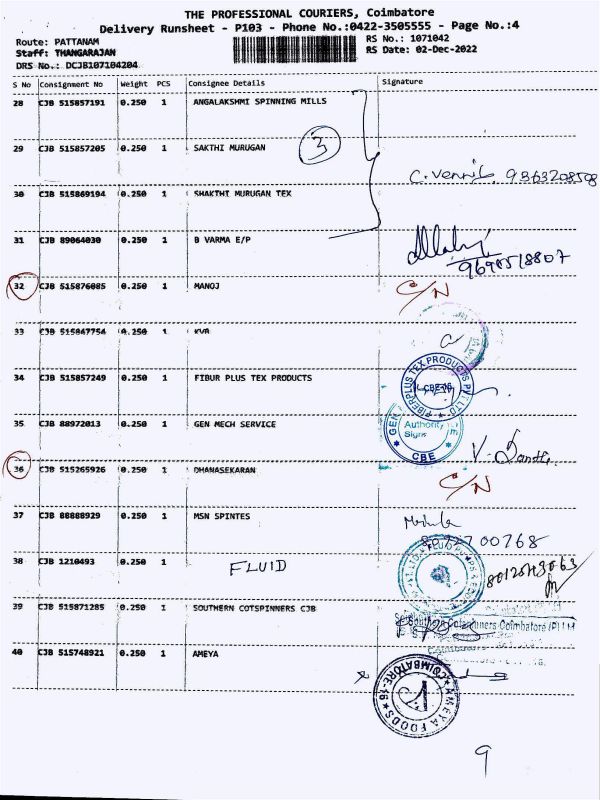 THE PROFESSIONAL COURIERS, Coimbatore
Delivery Runsheet - P103 - Phone No.:0422-3505555 - Page No.:4
Route: PATTANAM
RS No.: 1071042
Staff: THANGARAJAN
RS Date: 02-Dec-2022
DRS No.: DCJB107104204
S No Consignment No Weight PCS Consignee Details Signature
28 CJB 515857191 0.250 1 ANGALAKSHMI SPINNING MILLS
29 CJB 515857205 0.250 1 SAKTHI MURUGAN
3
C. Vennila 9363208508
30 CJB 515869194 0.250 1 SHAKTHI MURUGAN TEX
31 CJB 89064030 0.250 1 B VARMA E/P
32 CJB 515876085 0.250 1 MANOJ C/N
33 CJB 515847754 0.250 1 KVR
34 CJB 515857249 0.250 1 FIBUR PLUS TEX PRODUCTS
FIBERPLUS TEX PRODUCTS PVT LTD
35 CJB 88972013 0.250 1 GEN MECH SERVICE
Authority
CBE
36 CJB 515265926 0.250 1 DHANASEKARAN C/N
37 CJB 88888929 0.250 1 MSN SPINTES
38 CJB 1210493 0.250 1 FLUID
39 CJB 515871285 0.250 1 SOUTHERN COTSPINNERS CJB
Southern Cotspinners Coimbatore
40 CJB 515748921 0.250 1 AMEYA
AMEYA FOODS COIMBATORE-16
9